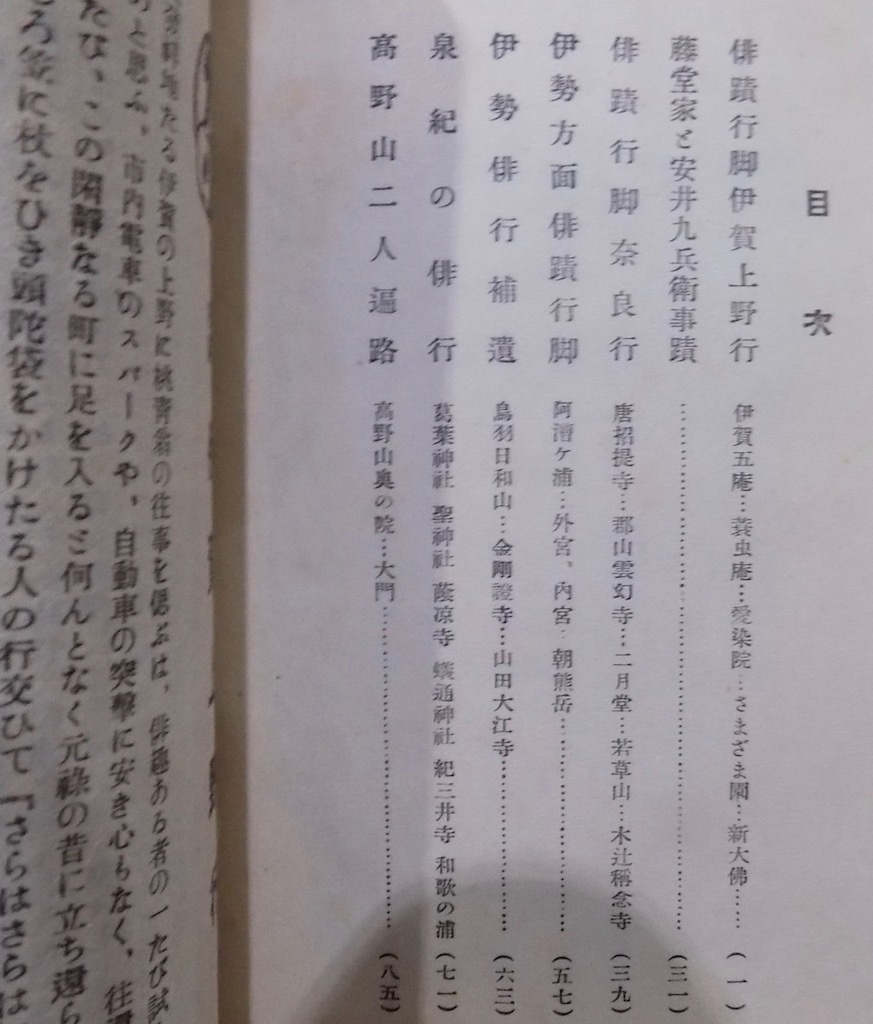 目次
俳蹟行脚伊賀上野行 伊賀五庵…蓑虫庵…愛染院…さまざま園…新大佛……(一)
藤堂家と安井九兵衛事蹟……(三一)
俳蹟行脚奈良行 唐招提寺…郡山雲幻寺…二月堂…若草山…木辻稱念寺(三九)
伊勢方面俳蹟行脚 阿漕ヶ浦…外宮、内宮、朝熊岳……(五七)
伊勢俳行補遺 鳥羽日和山…金剛證寺…山田大江寺……(六三)
泉紀の俳行 葛葉神社 聖神社 蔭凉寺 蟻通神社 紀三井寺 和歌の浦(七一)
高野山二人遍路 高野山奥の院…大門……(八五)
たる伊賀の上野に桃青翁の往事を偲ぶは、俳趣ある者の一たび試
と思ふ、市内電車のスパークや、自動車の突撃に安き心もなく、往還
たひ、この閑靜なる町に足を入ると何んとなく元祿の昔に立ち還ら
に杖をひき頭陀袋をかけたる人の行交ひて『さらはさらは